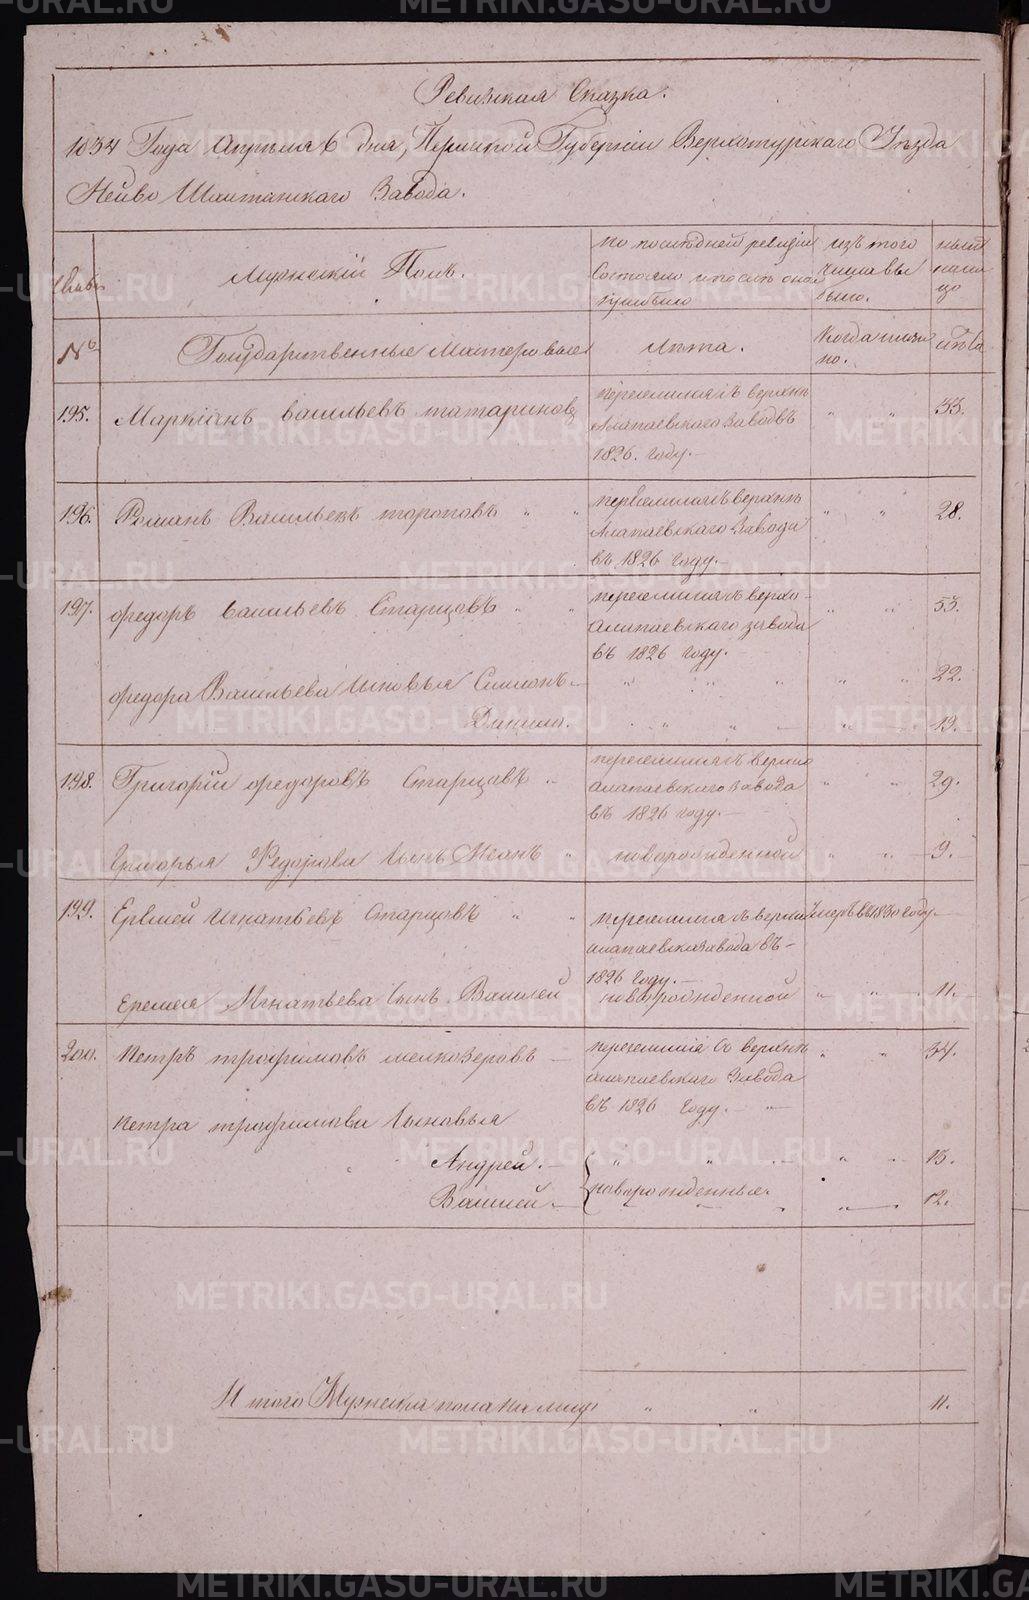 METRIKI.GASO-URAL.RU
Ревизская Сказка.
1834 Года Апреля 6 дня, Пермской Губернии Верхотурскаго Уезда
Нейво Шайтанскаго Завода.
Мужеский Полъ.
по последней ревизии
состояло и после оной
прибыло
изъ того
числа вы
было.
ныне
на ли
цо
№
Государственные Мастеровые
лета.
Когда имян
но.
лета
195. Маркіанъ Васильевъ татариновъ
переселился съ верхне
Алапаевскаго Заводъ
1826. году.
" " 33.
196. Романъ Васильевъ тороповъ " "
переселился съ верхне
Алапаевскаго Завода
въ 1826 году.
" " 28.
197. Федоръ Васильевъ Старцовъ " "
переселился съ верхо-
Алапаевскаго завода
въ 1826 году.
" " 53.
Федора Васильева сыновья Симіонъ " " " " " 22.
Данило. " " " " 19.
198. Григорій Федоровъ Старцовъ "
переселился съ верхно
алапаевскаго завода
въ 1826 году.
" " 29.
Григорья Федорова сынъ Иванъ " новорожденной " " 9.
199. Еремей Игнатьевъ Старцовъ " "
переселился съ верхне
алапаевска завода въ
1826 году.
умеръ въ 1830 году
Еремея Игнатьева сынъ Василей новорожденной " " 11.
200. Петръ трофимовъ мелкозеровъ
переселился съ верхне
алапаевскаго Завода
въ 1826 году.
" " 34.
Петра трофимова сыновья
Андрей. " " " " 15.
Василей новорожденные. " " 12.
Итого Мужеска пола на лицо " " 11.